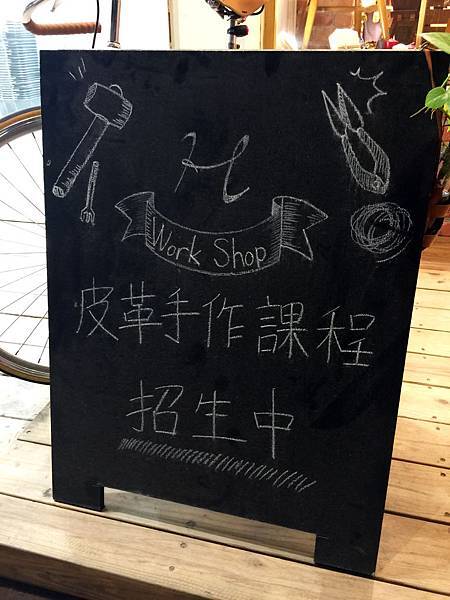 H
Work Shop
皮革手作課程
招生中